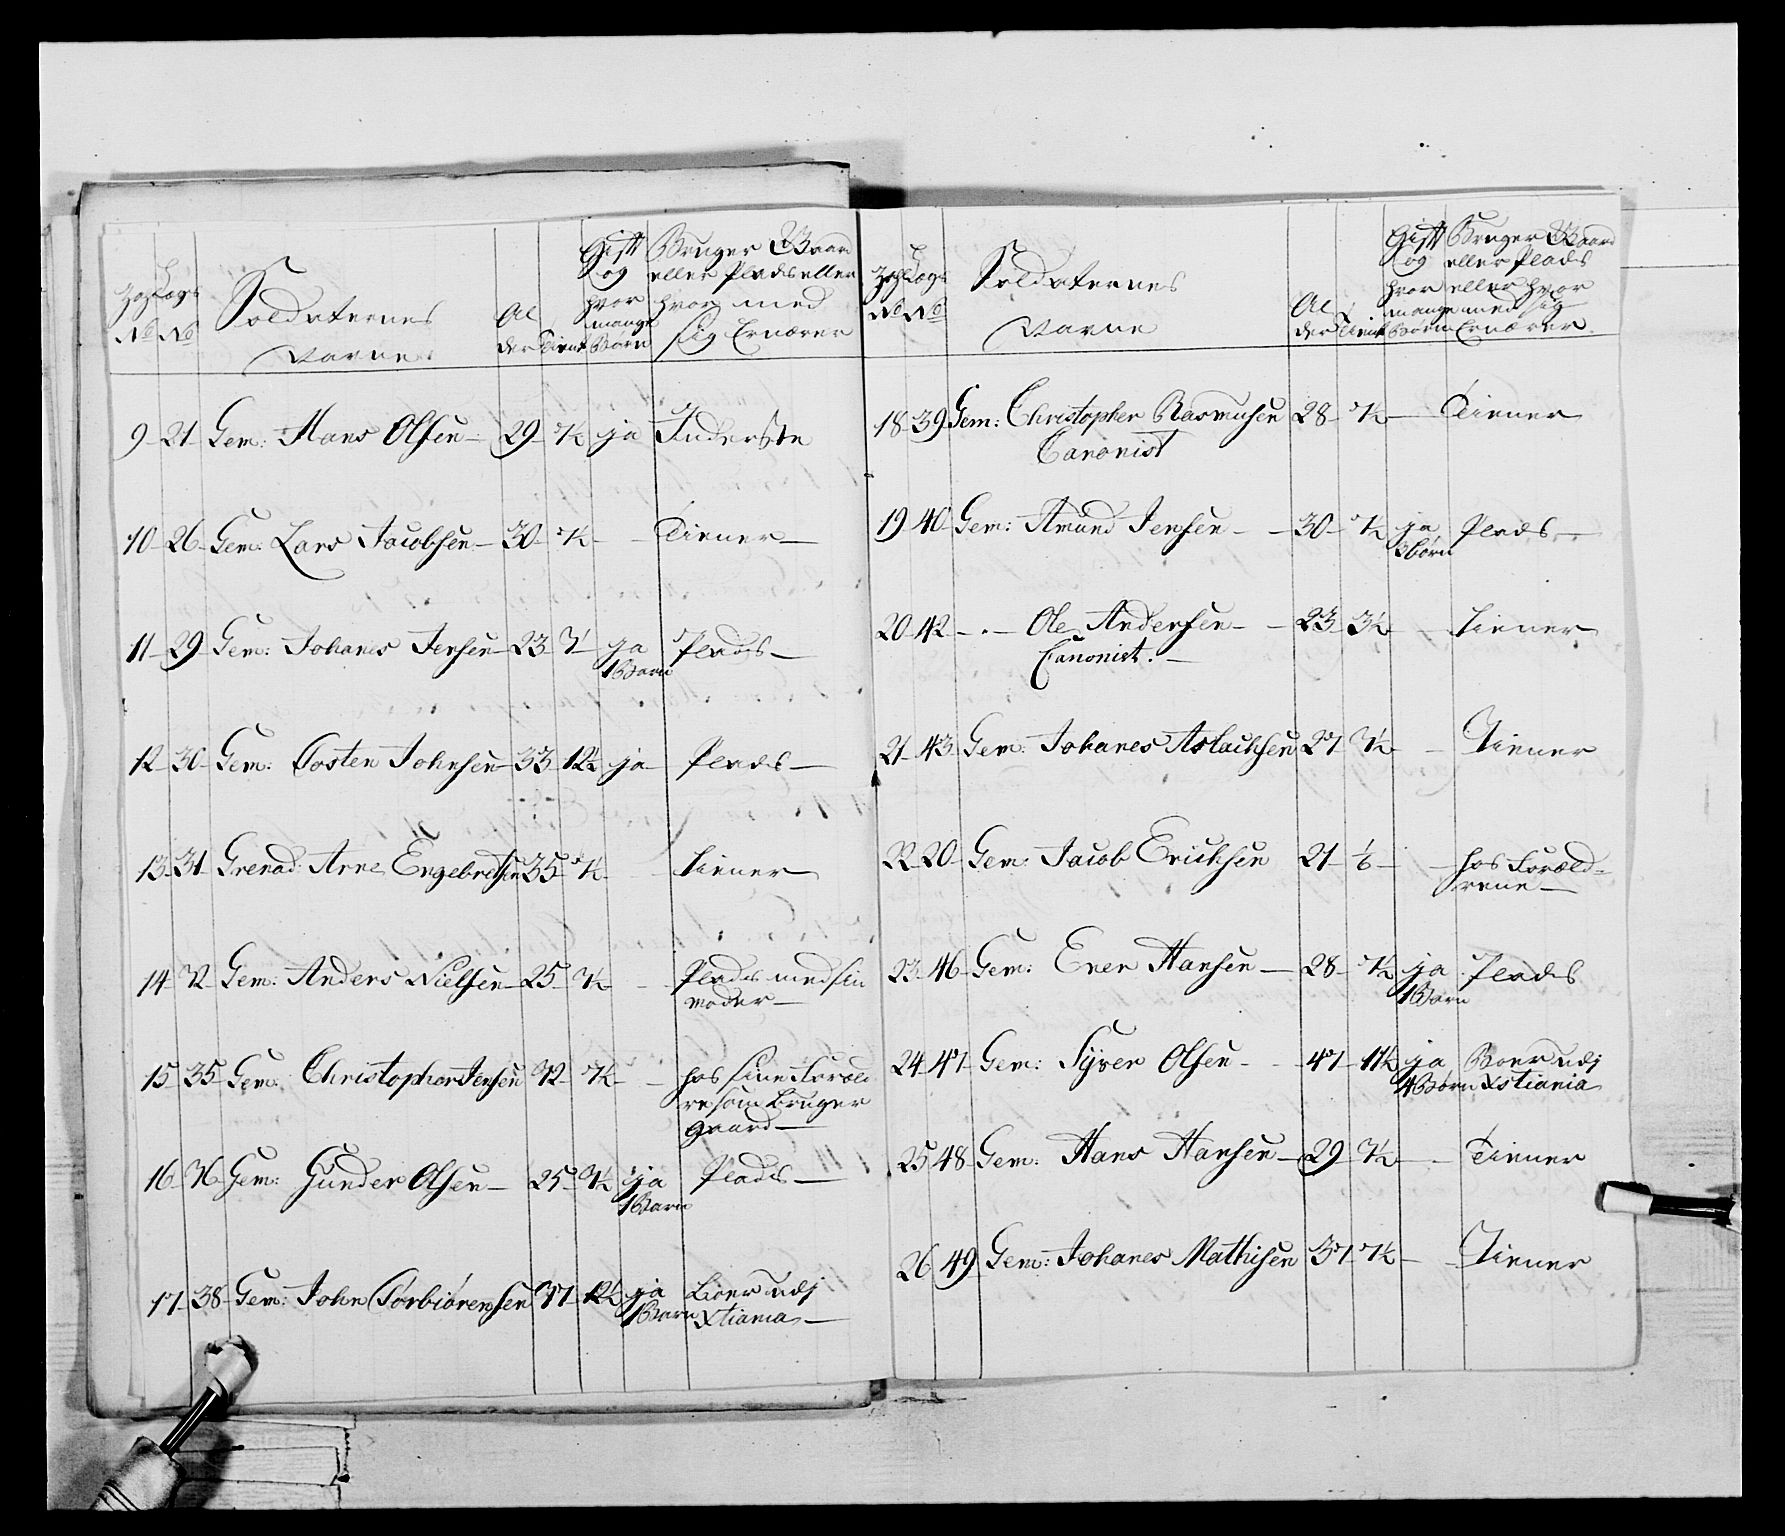 Soldaternes
Navne
Al
der
Tient
Gift
og
hvor
mange
Børn
Bruger Gaard
eller Plads eller
hvor med
sig Ernærer
9 21 Gem: Hans Olsen 29 7½ ja Inderste
10 26 Gem: Lars Jacobsen 30 7½ Tiener
11 29 Gem: Johanes Jensen 23 ja Plads
1 Barn
12 30 Gem: Tosten Johnsen 33 12½ ja Plads
13 31 Grenad: Arne Engebretsen 35 7½ Tiener
14 32 Gem: Anders Nielsen 25 3½ Plads med sin
moder
15 35 Gem: Christopher Jensen 32 7½ hos sine Foræld
re som bruger
gaard
16 36 Gem: Gunder Olsen 25 3½ ja Plads
1 Barn
17 38 Gem: John Torbiørensen 37 12½ ja boer udj
1 Barn Xstiania
Soldaternes
Navne
Al
der
Tient
Gift
og
hvor
mange
Børn
Bruger Gaard
eller Plads
eller hvor
med sig
Ernærer
18 39 Gem: Christopher Rasmusen 28 7½ Tiener
Canonist
19 40 Gem: Amund Jensen 30 7½ ja Plads
3 børn
20 42 Ole Andersen 23 3½ Tiener
Canonist.
21 43 Gem: Johanes Aslachsen 27 3½ Tiener
22 20 Gem: Jacob Erichsen 21 hos Foræld-
rene
23 46 Gem: Even Hansen 28 7½ ja Plads
1 Barn
24 47 Gem: Syver Olsen 47 11½ ja Boer udj
4 Børn Xstiania
25 48 Gem: Hans Hansen 29 7½ Tiener
26 49 Gem: Johanes Mathisen 37 7½ Tiener